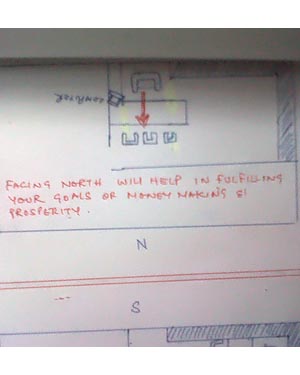 COMPUTER
FACING NORTH WILL HELP IN FULFILLING
YOUR GOALS OF MONEY MAKING &
PROSPERITY.
N
S